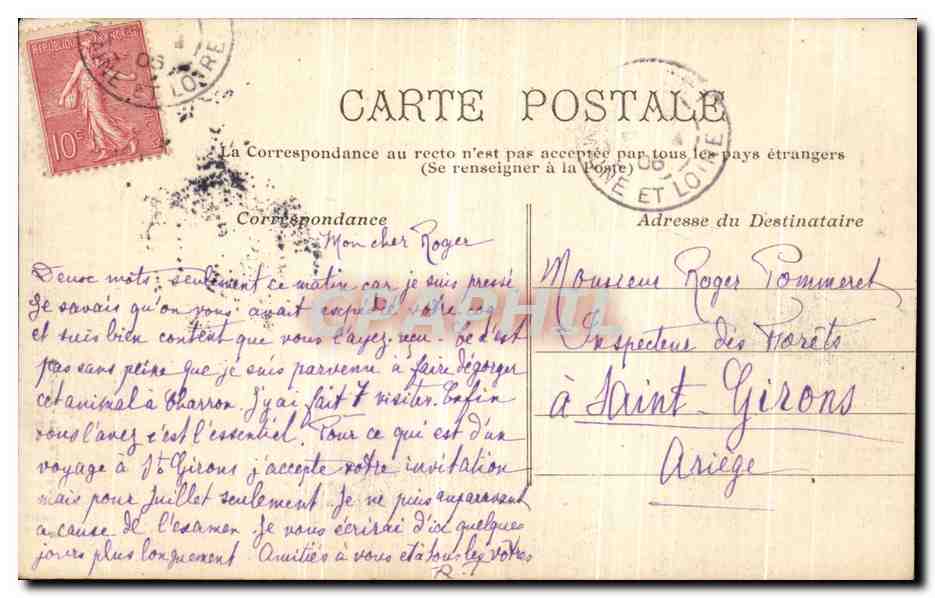 REPUBLIQUE FRANÇAISE
10c
06
MAINE ET LOIRE
CARTE POSTALE
06
MAINE ET LOIRE
La Correspondance au recto n'est pas acceptée par tous les pays étrangers
(Se renseigner à la Poste)
Correspondance
Mon cher Roger
Deux mots seulement ce matin car je suis pressé
Je savais qu'on vous avait expédié votre coq
et suis bien content que vous l'ayez reçu. Ce n'est
pas sans peine que je suis parvenu à faire dégorger
cet animal à Charron. J'y ai fait 7 visites. Enfin
vous l'avez c'est l'essentiel. Pour ce qui est d'un
voyage à St Girons j'accepte votre invitation
mais pour Juillet seulement. Je ne puis auparavant
à cause de l'examen. Je vous écrirai d'ici quelques
jours plus longuement. Amitiés à vous et à tous les vôtres
R.
Adresse du Destinataire
Monsieur Roger Pommeret
Inspecteur des Forêts
à Saint-Girons
Ariège
CPAPHIL